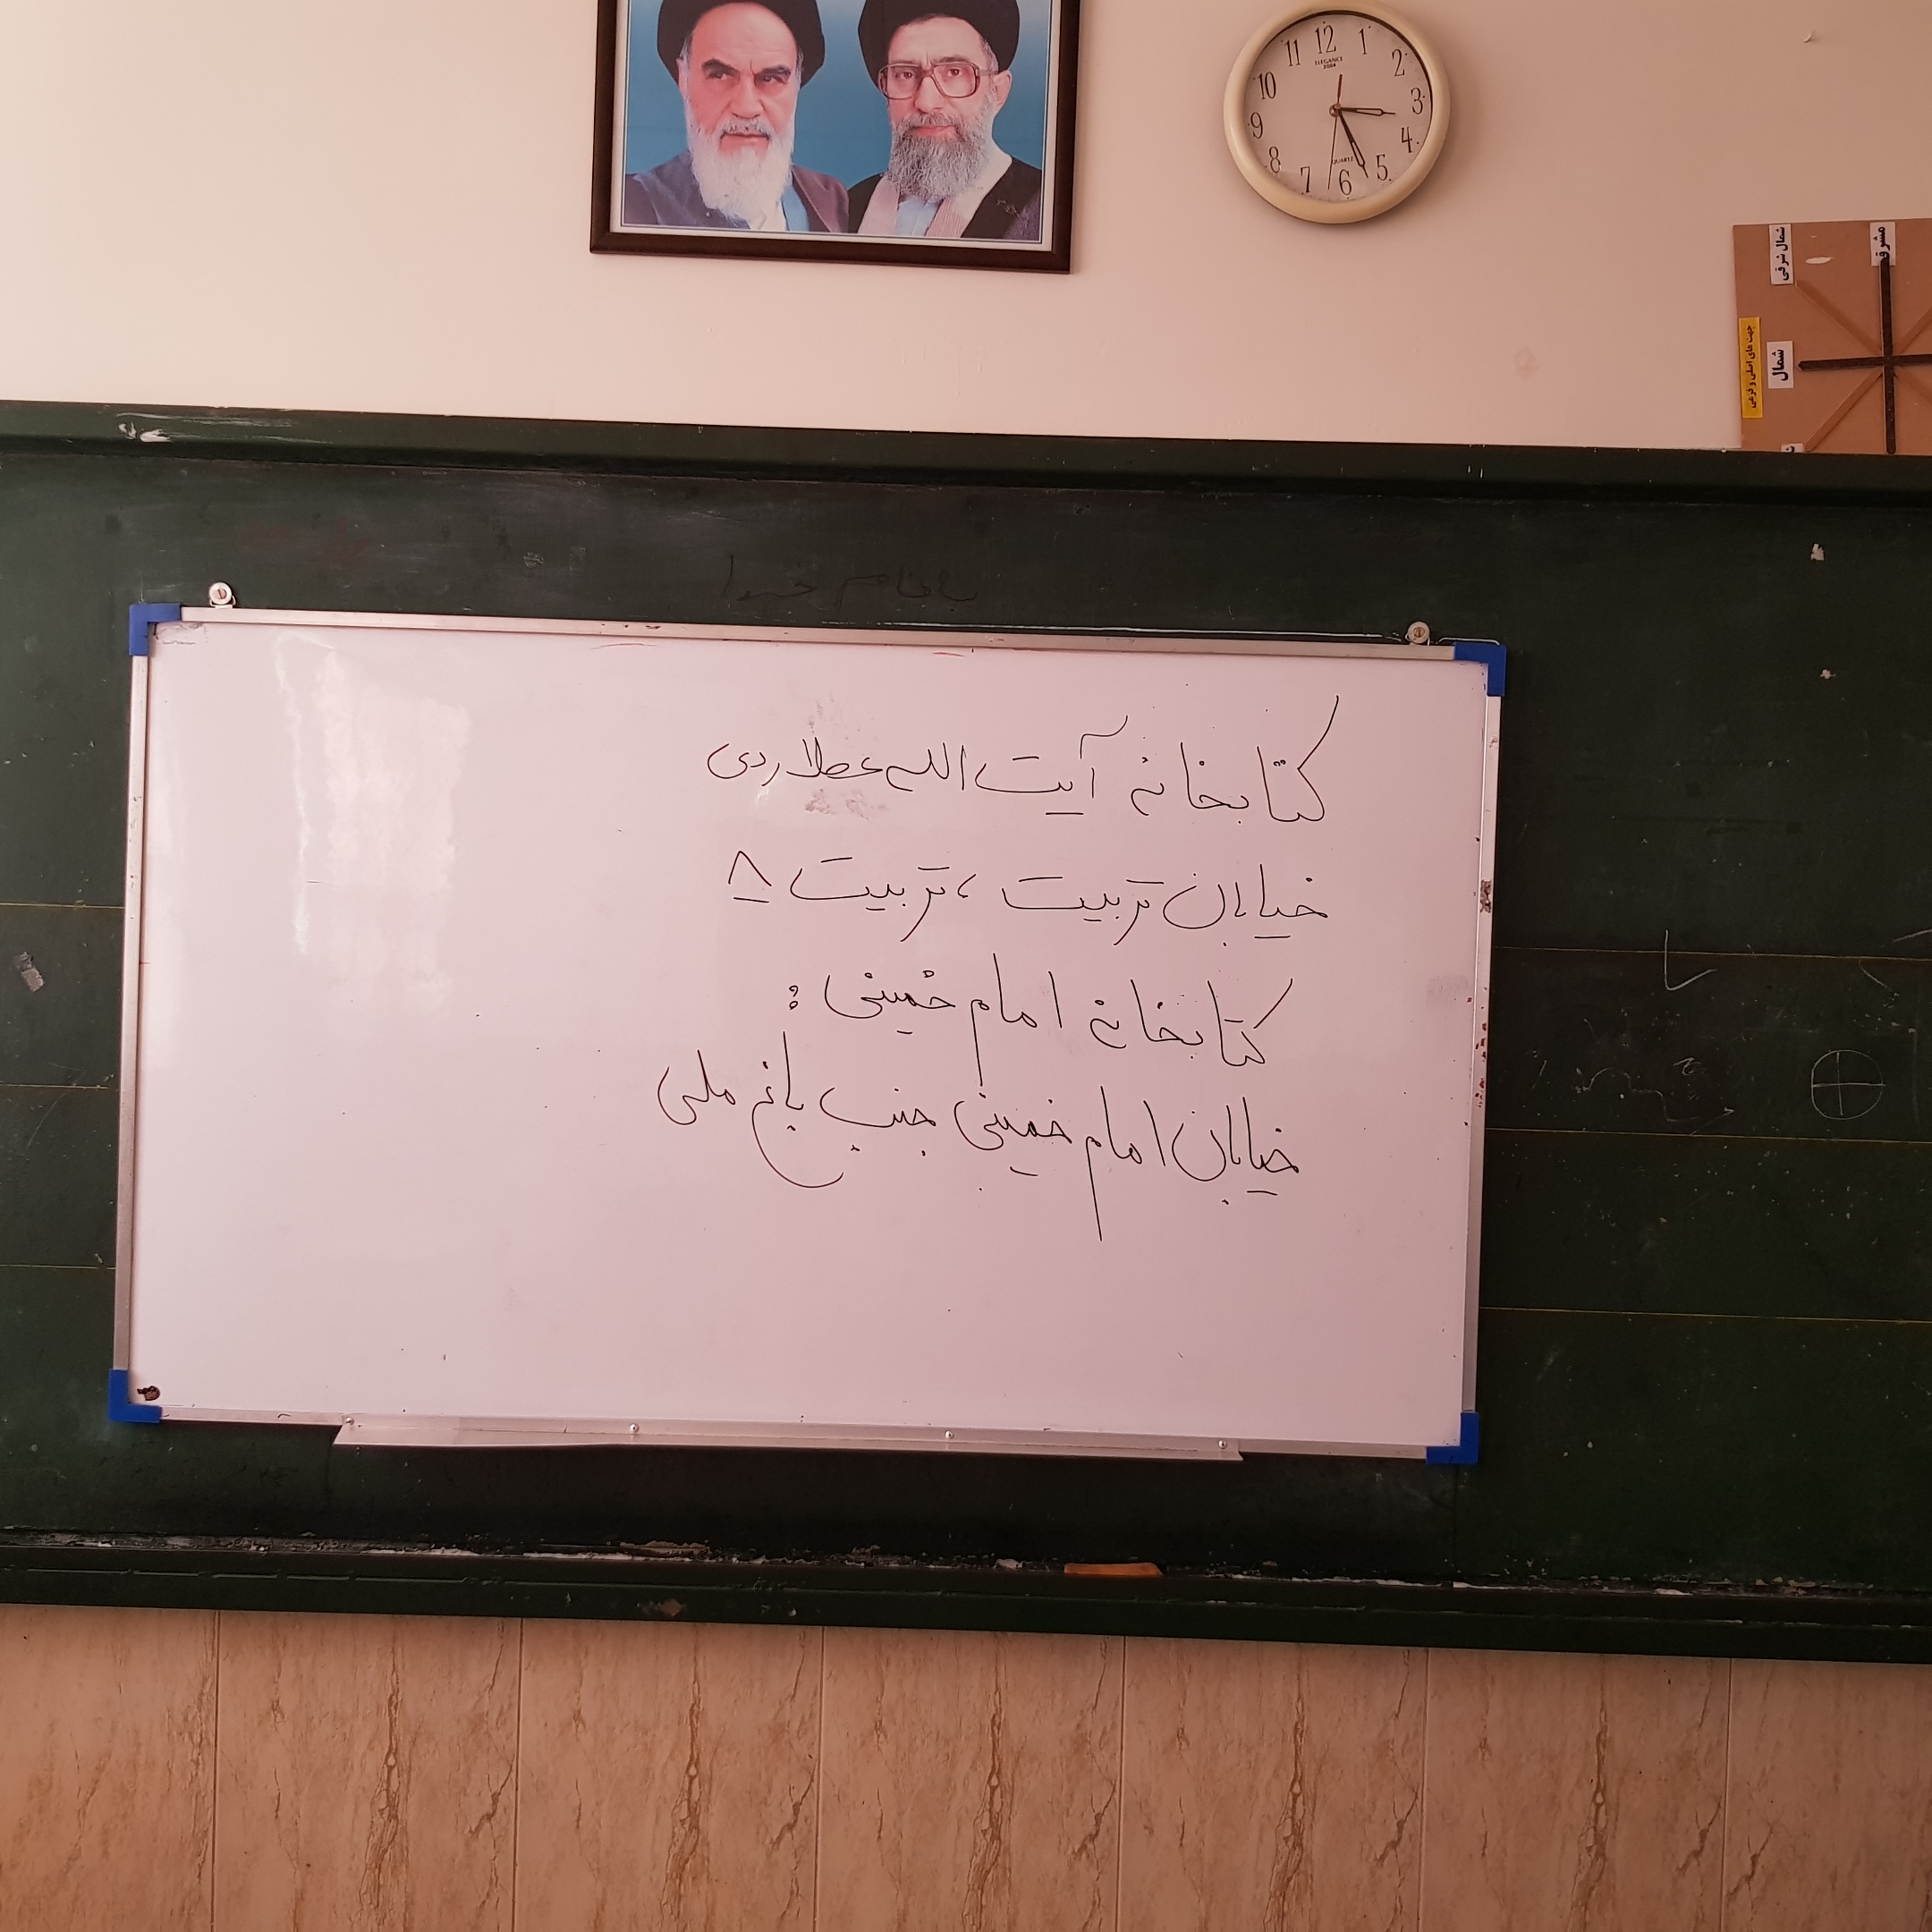 12
1
2
3
4
5
6
7
8
9
10
11
ELEGANCE
2004
QUARTZ
شمال شرقی
مشرق
جهت های اصلی و فرعی
شمال
به نام خدا
کتابخانه آیت الله عطاردی
خیابان تربیت ، تربیت ۸
کتابخانه امام خمینی :
خیابان امام خمینی جنب باغ ملی